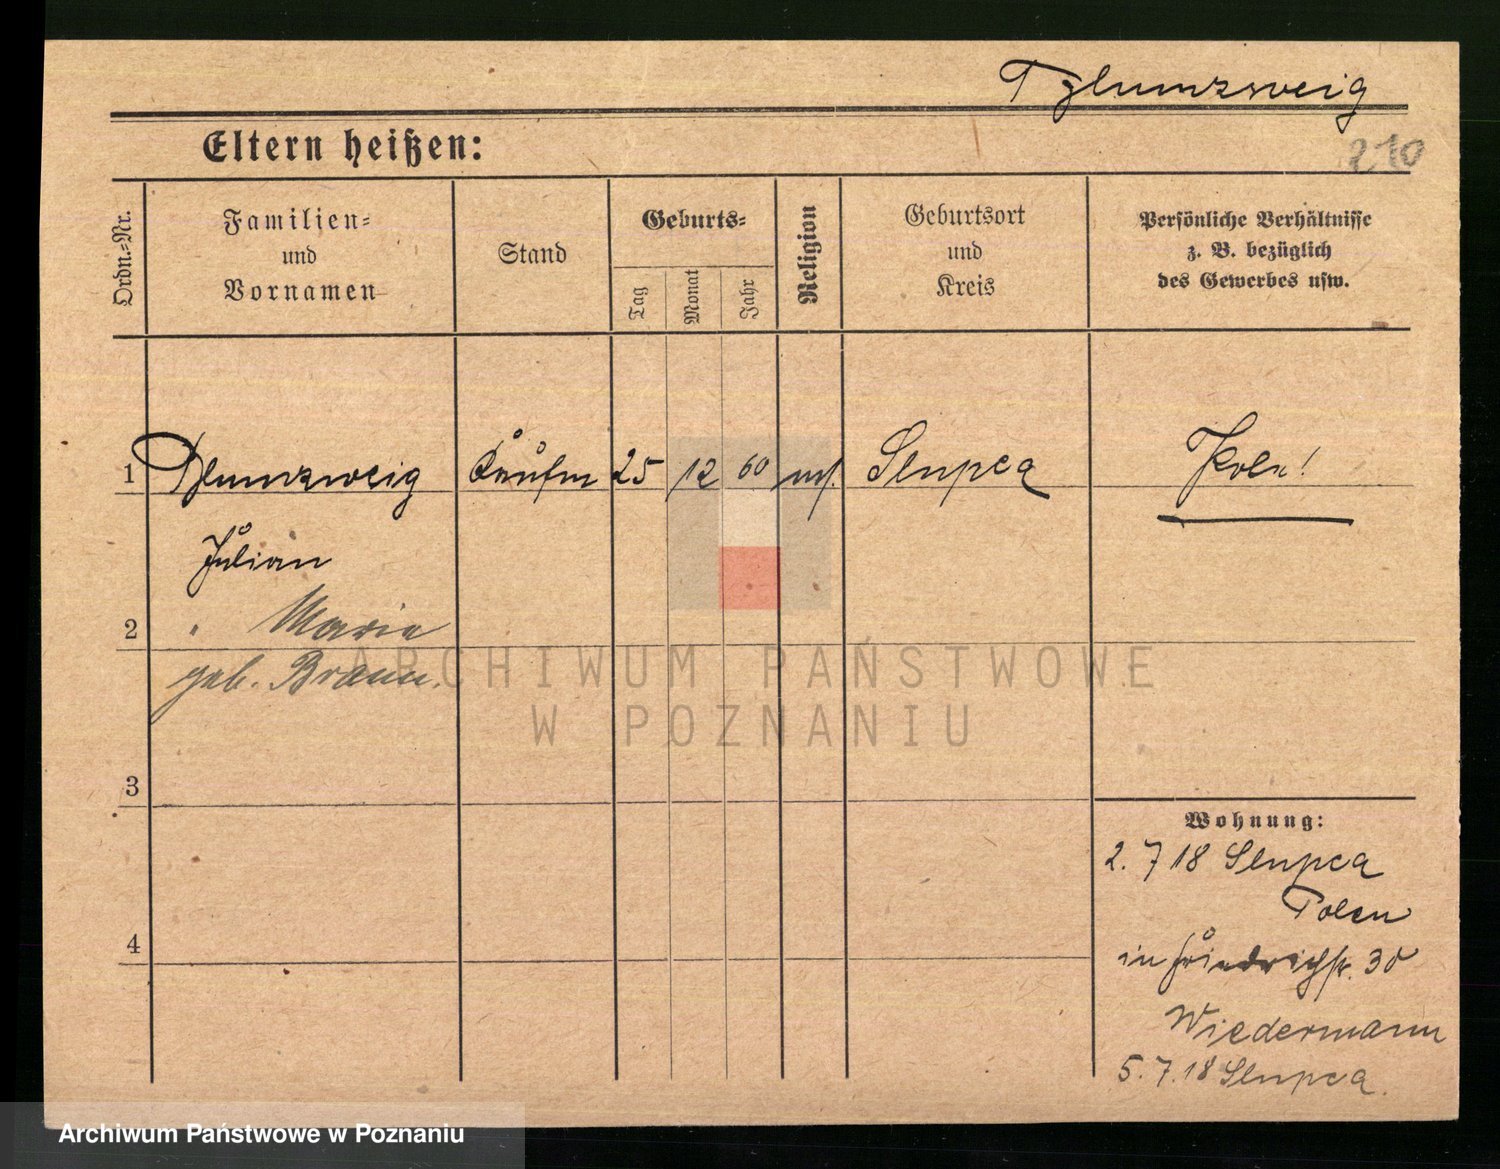 Pflumzweig
210
Eltern heißen:
Ordn.=Nr.
Familien=
und
Vornamen
Stand
Geburts=
Tag
Monat
Jahr
Religion
Geburtsort
und
Kreis
Persönliche Verhältnisse
z. B. bezüglich
des Gewerbes usw.
1 Pflumzweig Kaufm 25 12 60 Slupca Pole!
Julian
2 Marie
geb. Braun.
ARCHIWUM PAŃSTWOWE
W POZNANIU
3
Wohnung:
2. 7 18 Slupca
Polen
in Friedrichstr. 30
Wiedermann
5. 7. 18 Slupca.
4
Archiwum Państwowe w Poznaniu